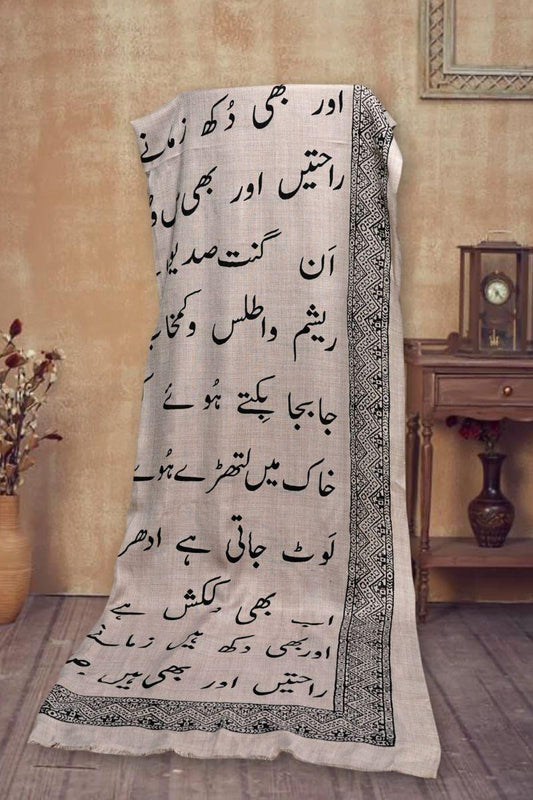 اور بھی دُکھ زمانے
راحتیں اور بھی
اَن گنت صدیو
ریشم و اطلس و کمخا
جابجا بکتے ہُوئے
خاک میں لتھڑے ہُوئے
لَوٹ جاتی ہے ادھر
اب بھی دلکش ہے
اور بھی دکھ ہیں زمانے
راحتیں اور بھی ہیں